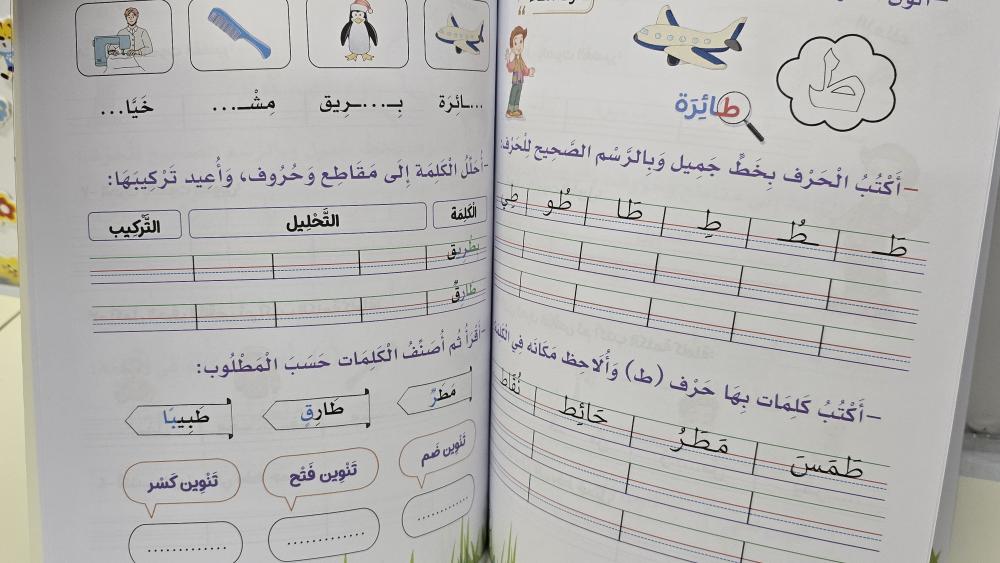 ط
طائِرَة
– أَكْتُبُ الْحَرْف بِخَطٍّ جَمِيل وَبِالرَّسْم الصَّحِيح لِلْحَرْف:
طَـ ـطُـ طِ طَا طُو طِي
– أَكْتُبُ كَلِمَات بِهَا حَرْف (ط) وَأُلَاحِظ مَكَانَه فِي الْكَلِمَة
طَمَسَ مَطَرُ حَائِط نُقَاط
...ـائِرَة بِـ...ـرِيق مِشْـ... خَيَّا...
– أُحَلِّلُ الْكَلِمَة إِلَى مَقَاطِع وَحُرُوف، وَأُعِيد تَرْكِيبَهَا:
الْكَلِمَة التَّحْلِيل التَّرْكِيب
بطْرِيق
طارِقٌ
– أَقْرَأُ ثُم أُصَنِّفُ الْكَلِمَات حَسَبَ الْمَطْلُوب:
مَطَرٌ طَارِقٍ طَبِيبًا
تَنْوِين ضَم تَنْوِين فَتْح تَنْوِين كَسْر
............ ............ ............